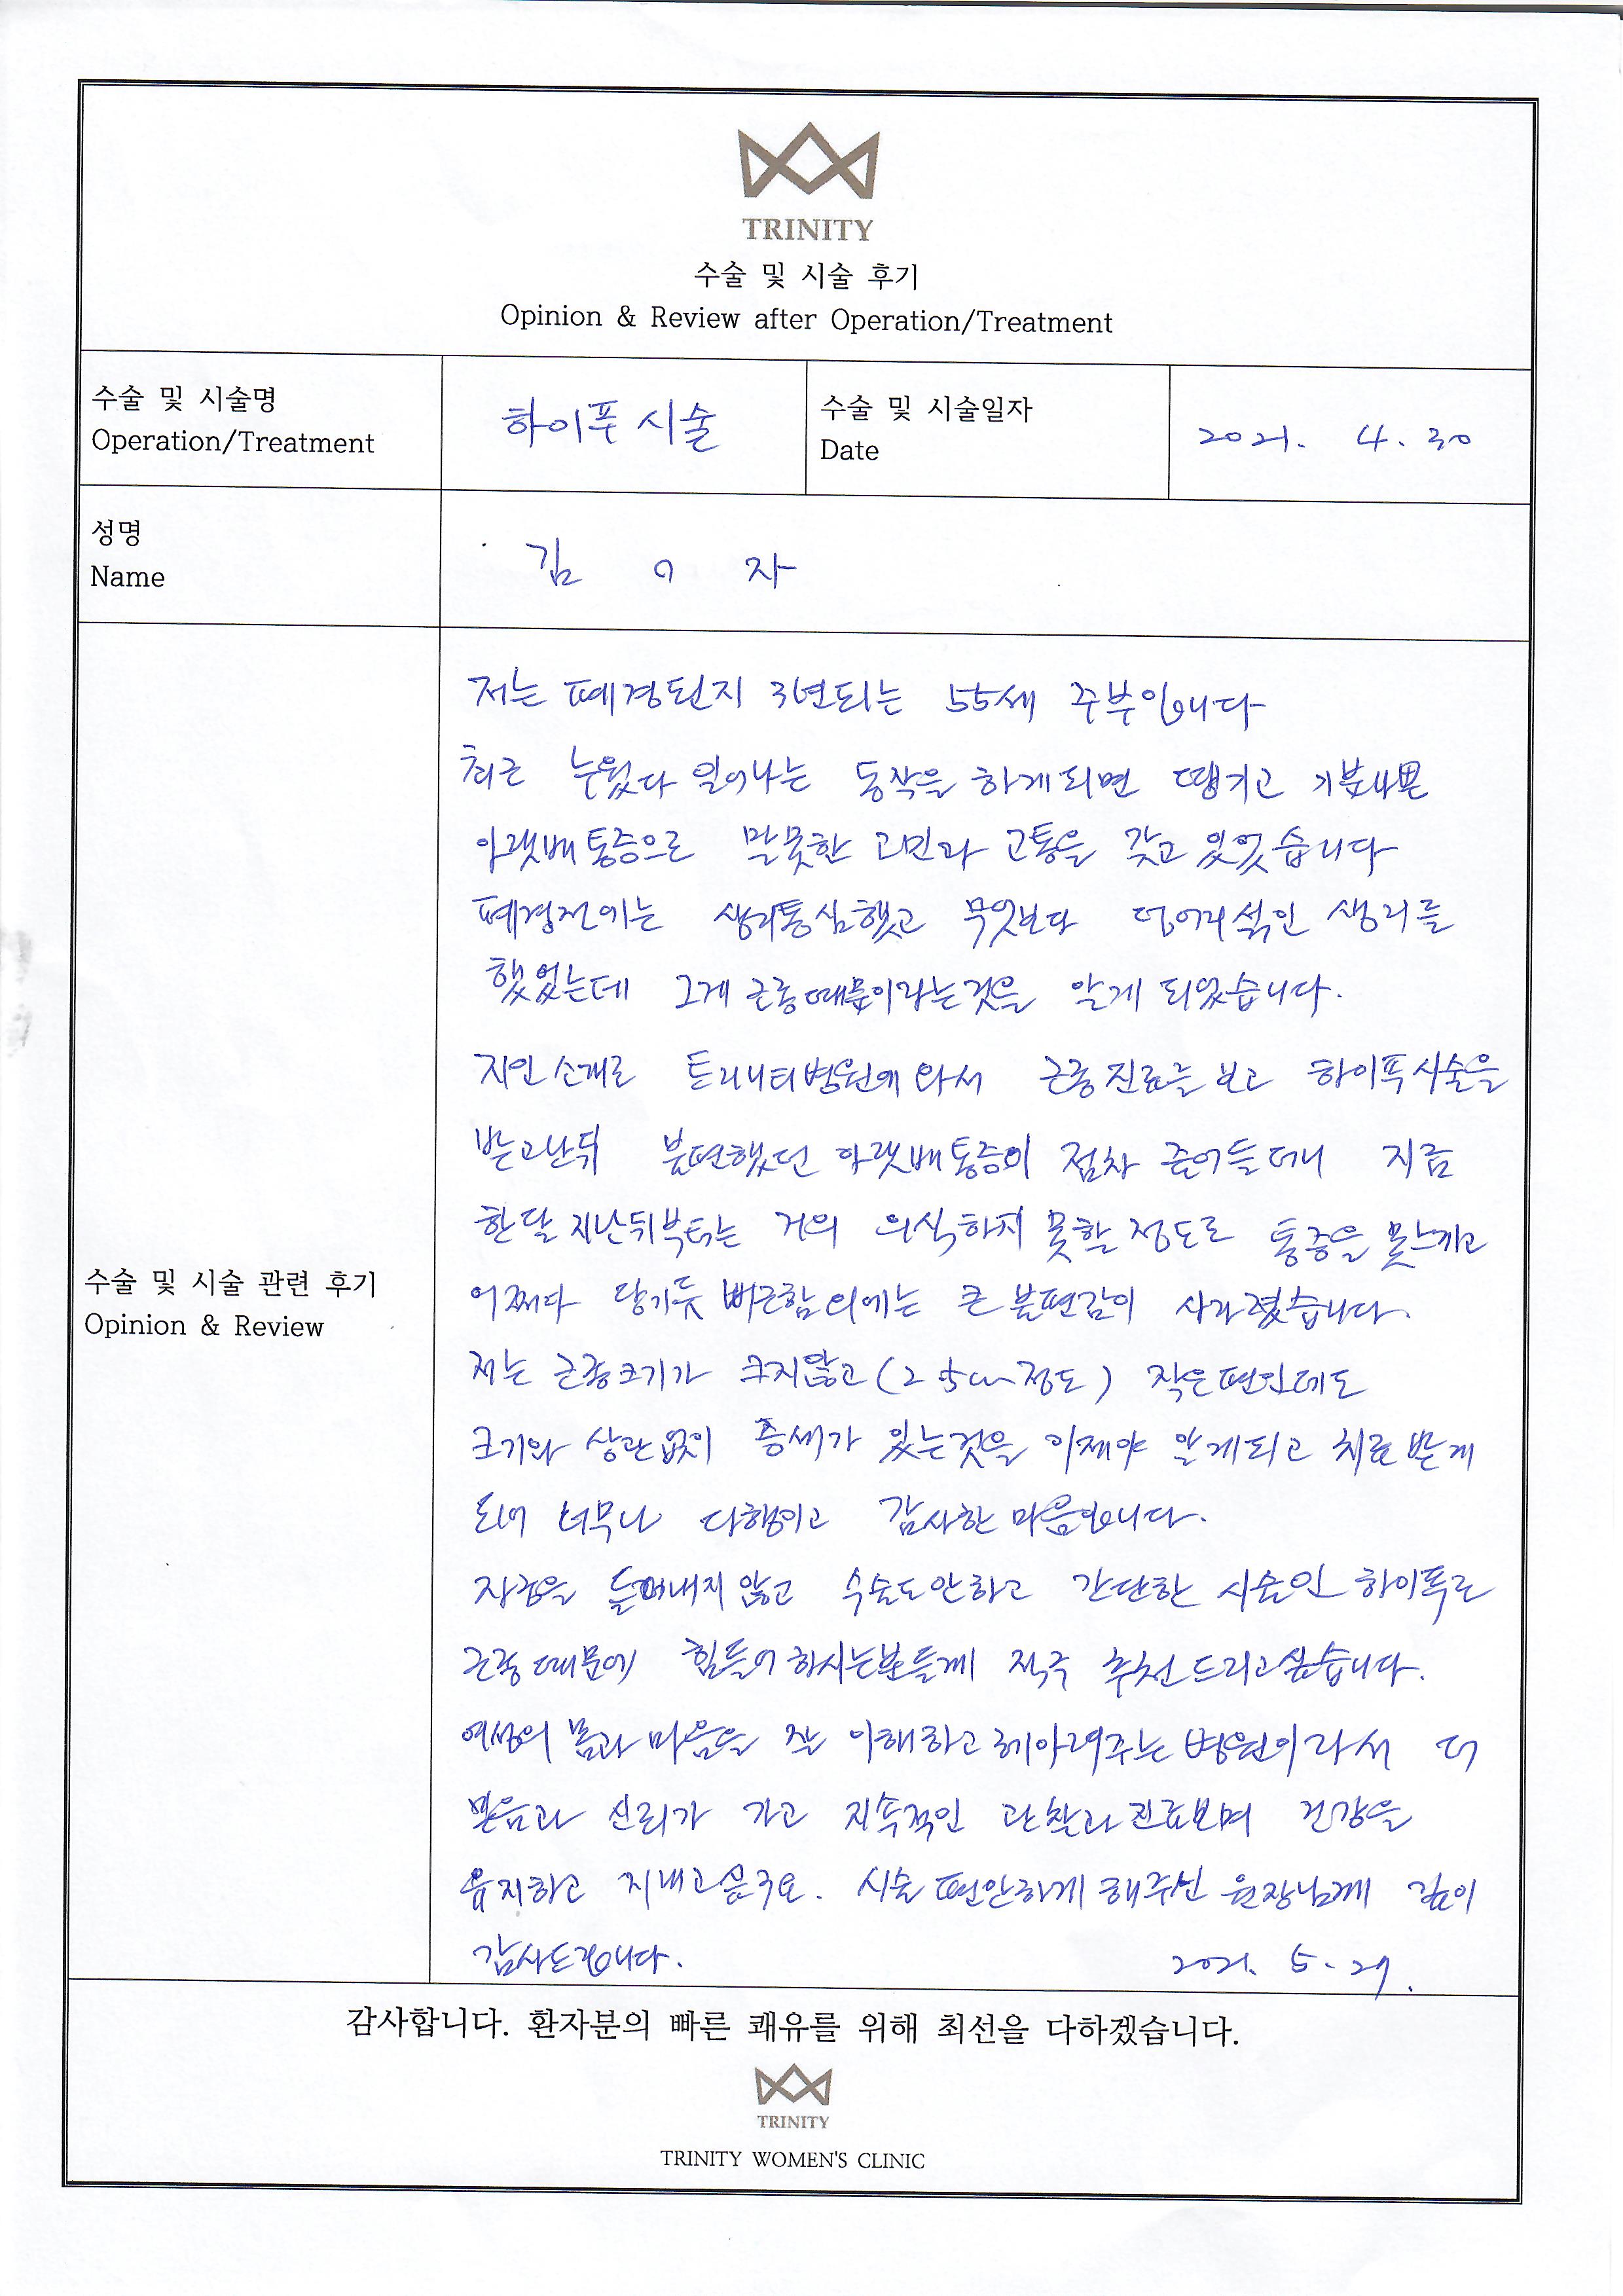 TRINITY
수술 및 시술 후기
Opinion & Review after Operation/Treatment
수술 및 시술명
Operation/Treatment
하이푸 시술
수술 및 시술일자
Date
2021. 4. 30
성명
Name
김 ㅇ 자
수술 및 시술 관련 후기
Opinion & Review
저는 폐경된지 3년되는 55세 주부입니다
최근 누웠다 일어나는 동작을 하게되면 땡기고 기분나쁜
아랫배통증으로 말못한 고민과 고통을 갖고 있었습니다
폐경전에는 생리통심했고 무엇보다 덩어리섞인 생리를
했었는데 그게 근종때문이라는것을 알게 되었습니다.
지인소개로 트리니티병원에 와서 근종진료를 보고 하이푸시술을
받고난뒤 불편했던 아랫배통증이 점차 줄어들더니 지금
한달 지난뒤부터는 거의 의식하지 못할 정도로 통증을 못느끼고
어쩌다 당기듯 뻐근함외에는 큰 불편감이 사라졌습니다.
저는 근종크기가 크지않고 (2.5cm정도) 작은편인데도
크기와 상관없이 증세가 있는것을 이제야 알게되고 치료받게
되어 너무나 다행이고 감사한 마음입니다.
자궁을 들어내지 않고 수술도안하고 간단한 시술인 하이푸로
근종때문에 힘들어하시는분들께 적극 추천드리고싶습니다.
여성의 몸과 마음을 잘 이해하고 헤아려주는 병원이라서 더
믿음과 신뢰가 가고 지속적인 관찰과 진료보며 건강을
유지하고 지내고싶구요. 시술 편안하게 해주신 원장님께 깊이
감사드립니다. 2021. 5. 29.
감사합니다. 환자분의 빠른 쾌유를 위해 최선을 다하겠습니다.
TRINITY
TRINITY WOMEN'S CLINIC